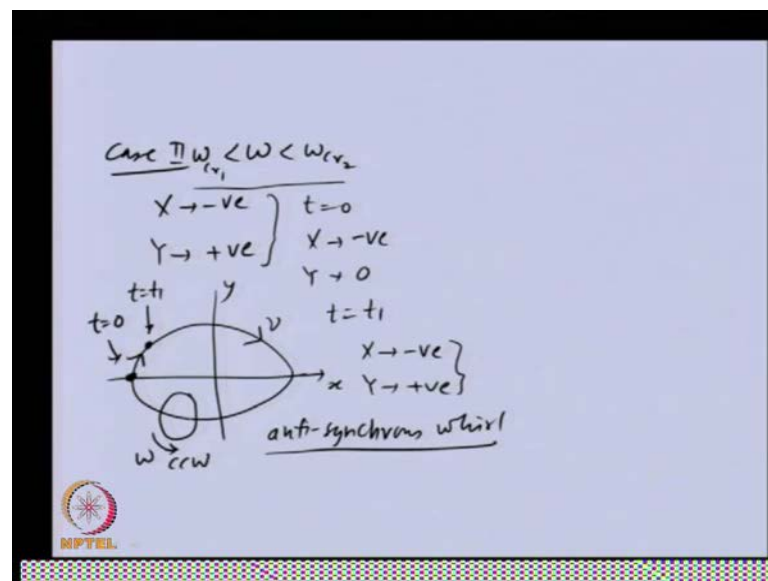 Case II ω_cr1 < ω < ω_cr2
X → -ve
Y → +ve
t=0
X → -ve
Y → 0
t = t1
X → -ve
Y → +ve
t=t1
t=0
y
ν
x
ω ccw
anti-synchronous whirl
NPTEL